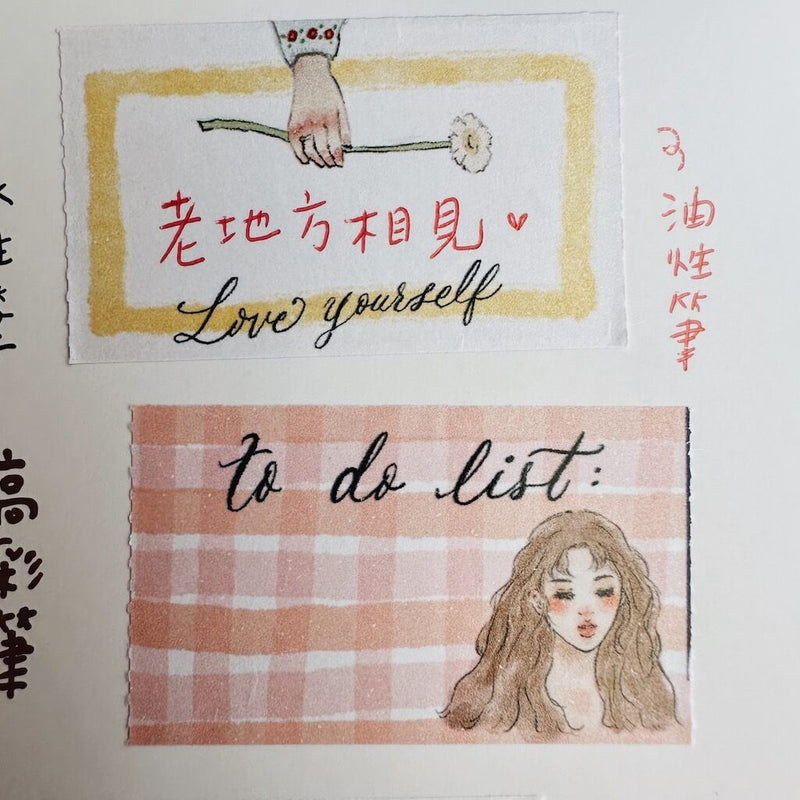 老地方相見
Love yourself
to do list:
油性筆
彩筆